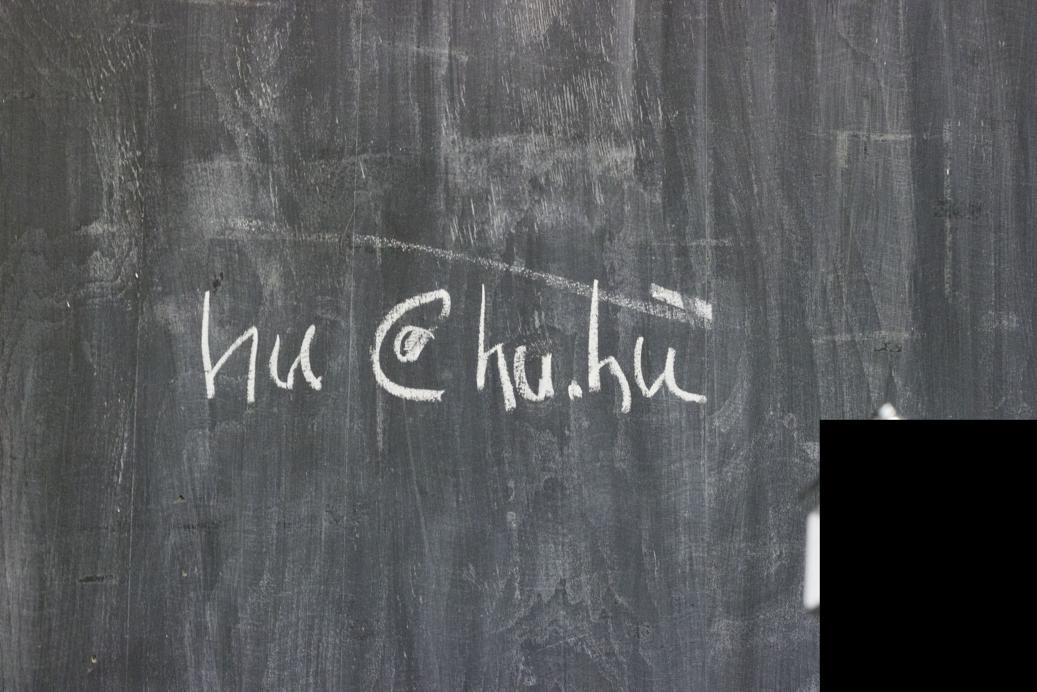 hu @hu.hu